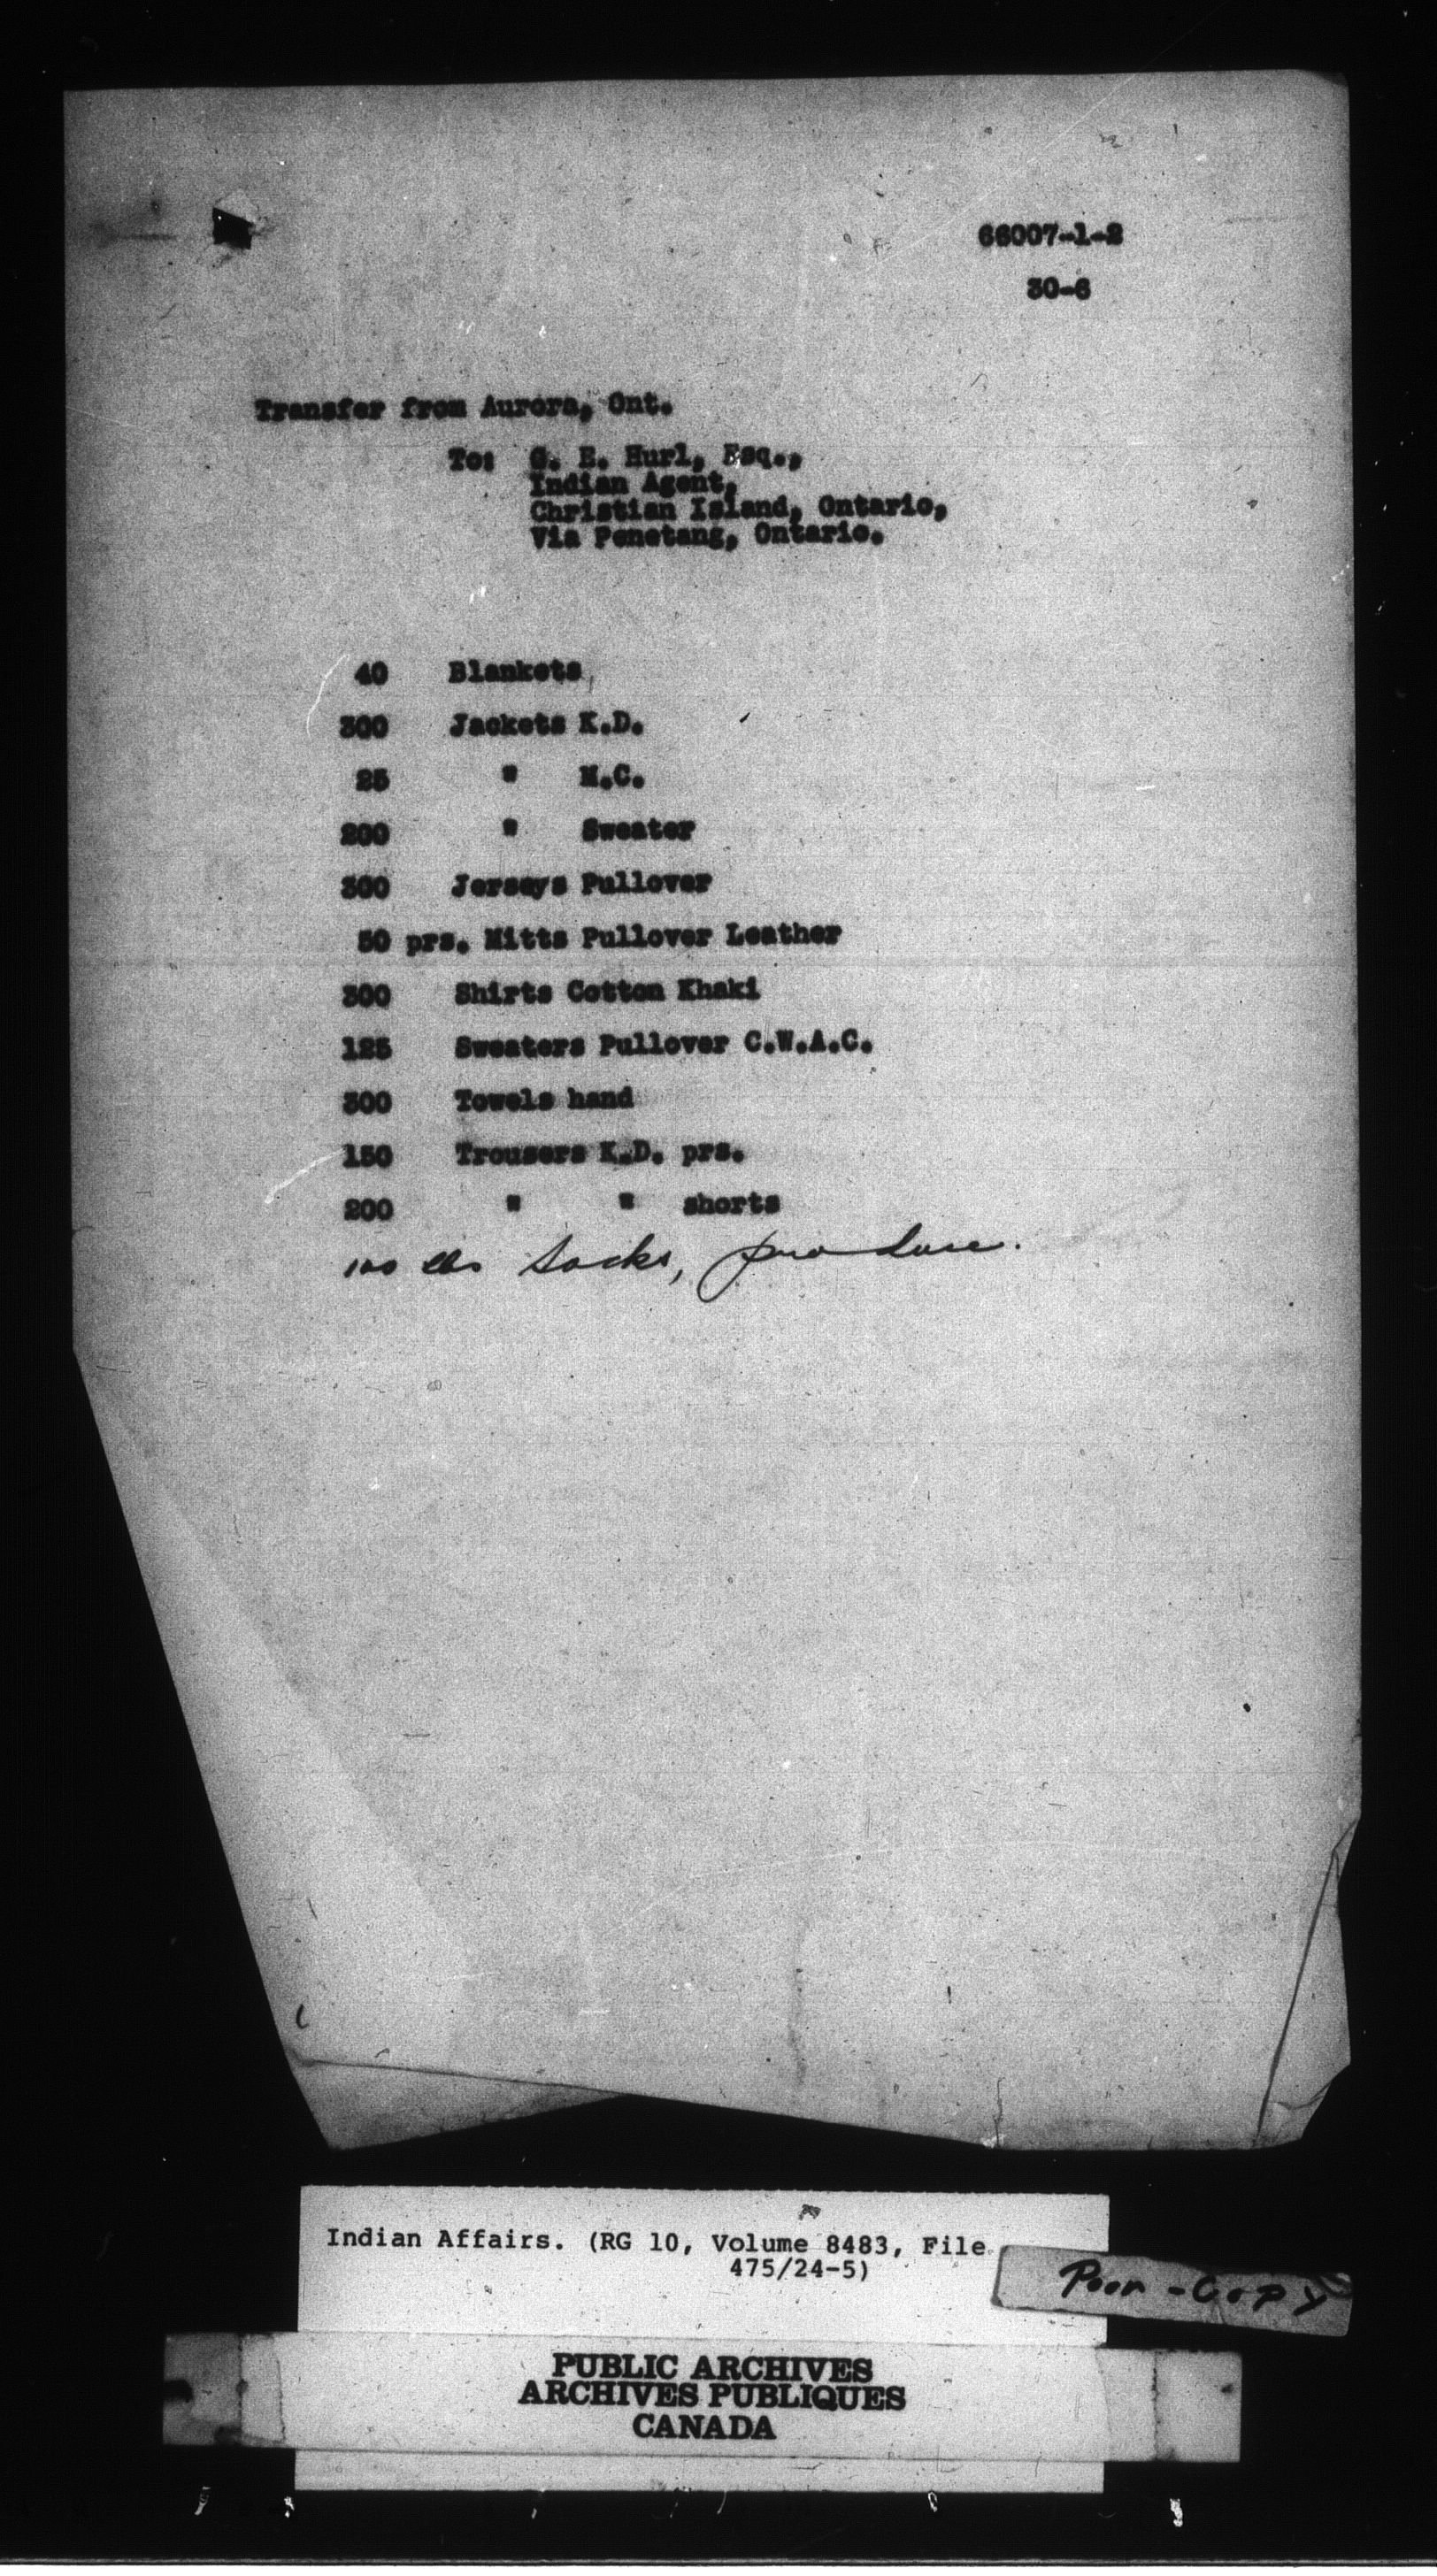 66007-1-2
30-6
Transfer from Aurora, Ont.
To: G. E. Hurl, Esq.,
Indian Agent,
Christian Island, Ontario,
Via Penetang, Ontario.
40 Blankets
300 Jackets K.D.
25 " M.C.
200 " Sweater
300 Jerseys Pullover
50 prs. Mitts Pullover Leather
300 Shirts Cotton Khaki
125 Sweaters Pullover C.W.A.C.
300 Towels hand
150 Trousers K.D. prs.
200 " " shorts
100 lbs Socks, produce.
Indian Affairs. (RG 10, Volume 8483, File
475/24-5)
Poor-Copy
PUBLIC ARCHIVES
ARCHIVES PUBLIQUES
CANADA